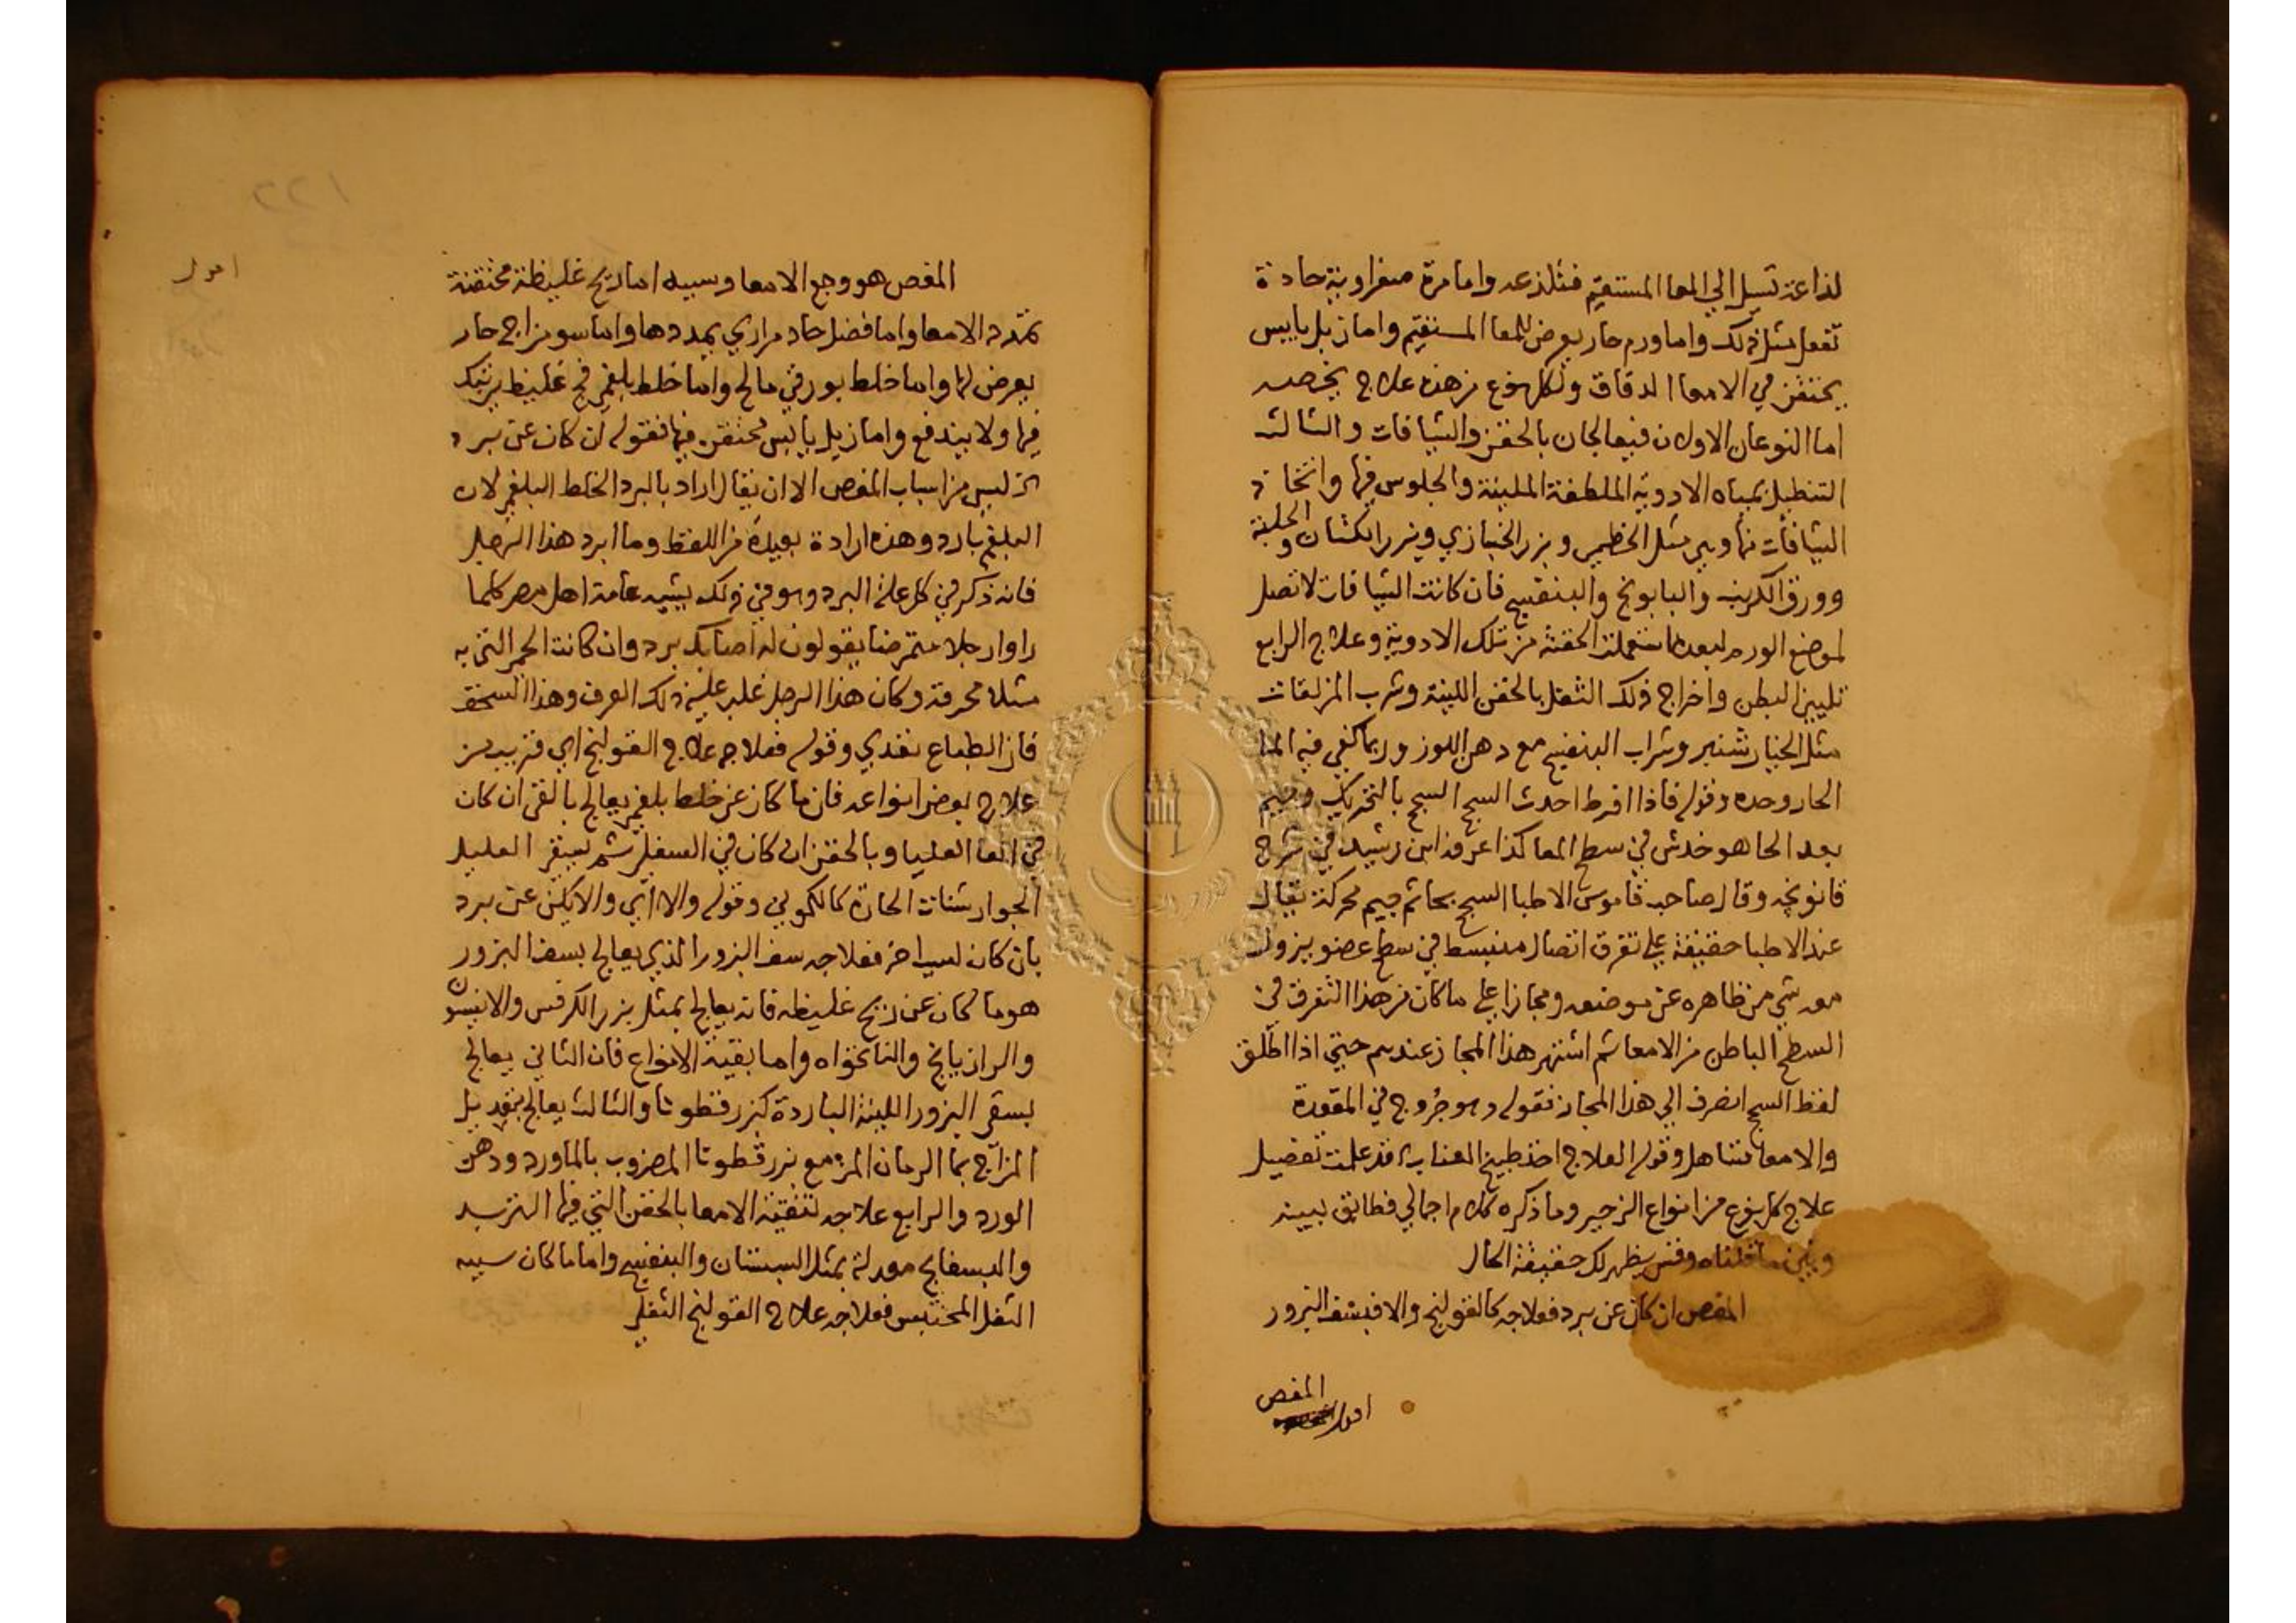 لذاعة تسيل الي المعا المستقيم فتلذعه واما مرة صفراوية حادة
تفعل مثل ذلك واما ورم حار يعرض للمعا المستقيم واما زبل يابس
يحتقن في الامعا الدقاق ولكل نوع من هذه علاج يخصه
اما النوعان الاولان فيعالجان بالحقن والشيافات والثالث
التنطيل بمياه الادوية الملطفة الملينة والجلوس فيها واتخاذ
الشيافات منها وهي مثل الخطمي وبزر الخبازي وبزر الكتان والحلبة
وورق الكرنب والبابونج والبنفسج فان كانت الشيافات لا تصل
لموضع الورم لبعده استعملت الحقنة من تلك الادوية وعلاج الرابع
تليين البطن واخراج ذلك الثفل بالحقن اللينة وشرب المزلقات
مثل الخيار شنبر وشراب البنفسج مع دهن اللوز وربما كفي فيه الما
الحار وحده وقوله فاذا افرط احدث السحج السحج بالتحريك وجيم
بعد الحا هو خدش في سطح المعا كذا عرفه ابن رشيد في شرح
قانونچه وقال صاحب قاموس الاطبا السحج بحا ثم جيم محركة يقال
عند الاطبا حقيقة علي تفرق اتصال منبسط في سطح عضو يزول
معه شي من ظاهره عن موضعه ومجازا علي ما كان من هذا التفرق في
السطح الباطن من الامعا ثم اشتهر هذا المجاز عندهم حتي اذا اطلق
لفظ السحج انصرف الي هذا المجاز فقوله وهو جروح في المقعدة
والامعا تساهل وقوله العلاج اخذ طبيخ العناب قد علمت تفصيل
علاج كل نوع من انواع الزحير وما ذكره كلام اجمالي فطابق بينه
وبين ما قلناه وقس يظهر لك حقيقة الحال
المغص ان كان عن برد فعلاجه كالقولنج والا فبسف البزور
المغص
اقول
اقول
المغص هو وجع الامعا وسببه اما ريح غليظة محتقنة
تمدد الامعا واما فضل حاد مراري يمددها واما سو مزاج حار
يعرض لها واما خلط بورقي مالح واما خلط بلغمي فج غليظ يرتبك
فيها ولا يندفع واما زبل يابس محتقن فيها فقوله ان كان عن برد
ليس من اسباب المغص الا ان يقال اراد بالبرد الخلط البلغمي لان
البلغم بارد وهذه ارادة بعيدة من اللفظ وما ابرد هذا الرجل
فانه ذكر في كل علة البرد وهو في ذلك يشبه عامة اهل مصر كلما
راوا رجلا متمرضا يقولون له اصابك برد وان كانت الحمي التي به
مثلا محرقة وكان هذا الرجل غلب عليه ذلك العرف وهذا السخف
فان الطباع تعدي وقوله فعلاجه علاج القولنج اي قريب من
علاج بعض انواعه فان ما كان عن خلط بلغمي يعالج بالقي ان كان
في المعا العليا وبالحقن ان كان في السفلي ثم يسقي العليل
الجوارشنات الحارة كالكموني وقوله والا اي والا يكن عن برد
بان كان لسبب اخر فعلاجه سف البزور الذي يعالج بسف البزور
هو ما كان عن ريح غليظه فانه يعالج بمثل بزر الكرفس والانيسون
والرازيانج والنانخواه واما بقية الانواع فان الثاني يعالج
بسقي البزور اللينة الباردة كبزر قطونا والثالث يعالج بتعديل
المزاج بما الرمان المز مع بزر قطونا المضروب بالماورد ودهن
الورد والرابع علاجه لتنقية الامعا بالحقن التي فيها التربد
والبسفايج معدلة بمثل السبستان والبنفسج واما ما كان سببه
الثفل المحتبس فعلاجه علاج القولنج الثفلي
١٢٢